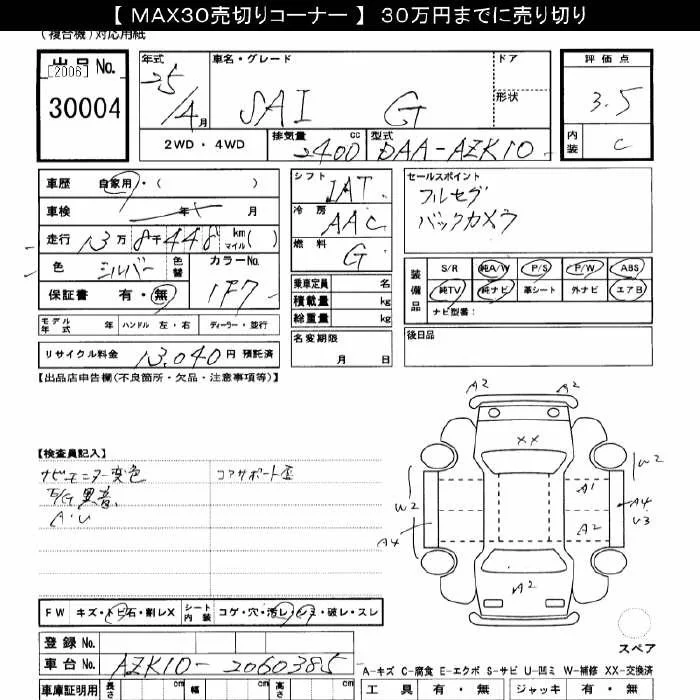 【 MAX30売切りコーナー 】 30万円までに売り切り
(複合機)対応用紙
出品 No.
[2006]
30004
年式
25/4月
車名・グレード
SAI G
ドア
形状
評価点
3.5
内装
C
2WD・4WD
排気量 2400 cc
型式 DAA-AZK10
車歴 自家用・( )
車検 年 月
走行 13万8千448 km マイル ( )
色 シルバー 色替
カラーNo. 1F7
保証書 有・無
シフト IAT
冷房 AAC
燃料 G
乗車定員 名
積載量 kg
総重量 kg
名変期限
月 日
セールスポイント
フルセグ
バックカメラ
装備品
S/R 純A/W P/S P/W ABS
純TV 純ナビ 革シート 外ナビ エアB
ナビ型番:
後日品
モデル年式 年 ハンドル 左・右 ディーラー・並行
リサイクル料金 13,040 円 預託済
【出品店申告欄(不良箇所・欠品・注意事項等)】
【検査員記入】
ナビモニター変色 コアサポート歪
E/G異音
A・U
A2 A2
XX
W2 W2
A1
A4 A4
U3
A2
A2
FW キズ・トビ石・割レX シート内装 コゲ・穴・汚レ・シミ・破レ・スレ
登録 No.
車台 No. AZK10-2060385
スペア
A-キズ C-腐食 E-エクボ S-サビ U-凹ミ W-補修 XX-交換済
車庫証明用 長さ cm 幅 cm 高さ cm
工具 有・無 ジャッキ 有・無